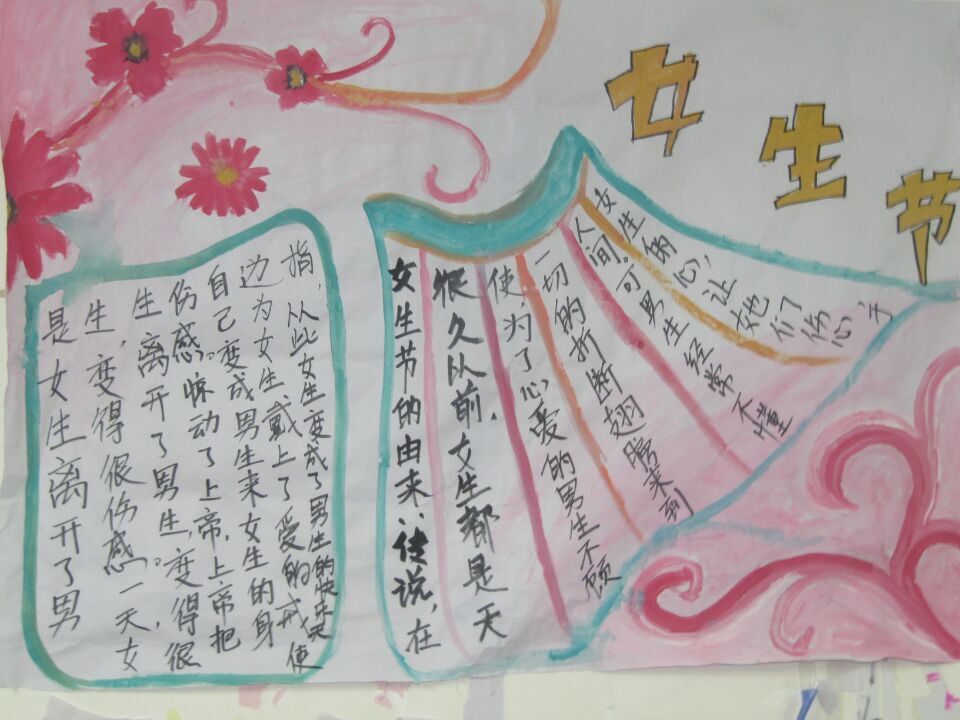 女生节
女生节的由来：传说，在
很久以前，女生都是天
使，为了心爱的男生不顾
一切的折断翅膀来到
人间。可男生经常不懂
女生的心，让她们伤心，于
是女生离开了男
生，变得很伤感。一天，女
生离开了男生，变得很
伤感。惊动了上帝，上帝把
自己变成男生来女生的身
边为女生戴上了爱的戒
指，从此女生变成了男生的快乐天使